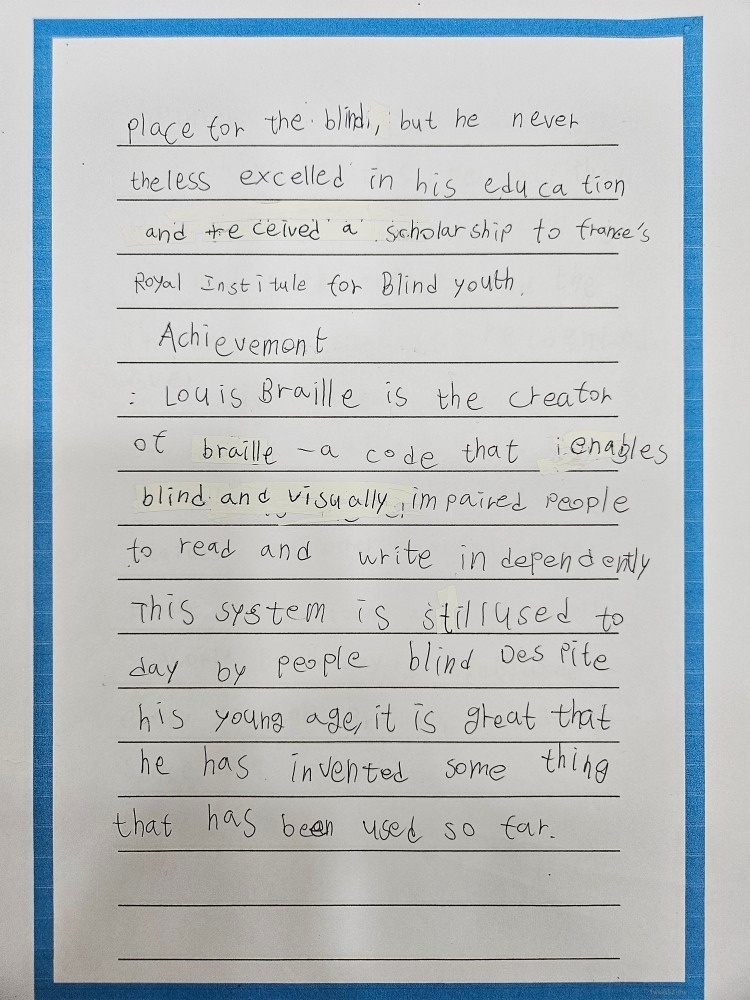 place for the blind, but he never
theless excelled in his education
and received a scholarship to france's
Royal Institute for Blind youth.
Achievement
: Louis Braille is the creator
of braille - a code that enables
blind and visually impaired people
to read and write independently
This system is still used to
day by people blind Despite
his young age, it is great that
he has invented some thing
that has been used so far.